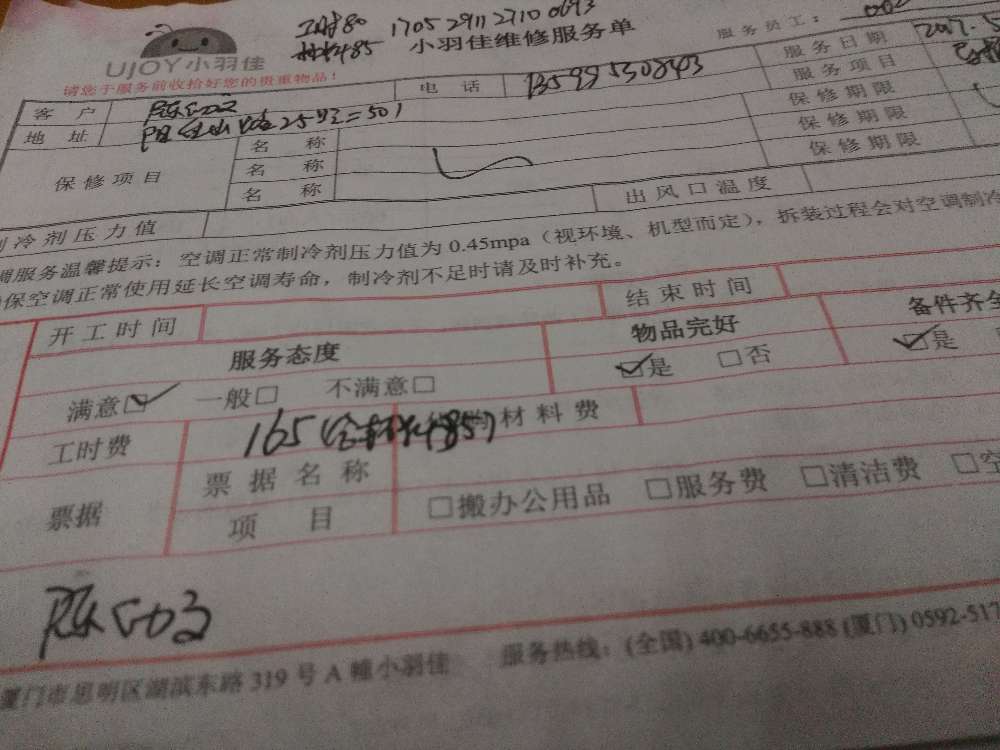 工时80 1705291127100693
材料85 小羽佳维修服务单 服务员工：002
UJOY小羽佳
请您于服务前收拾好您的贵重物品！ 服务日期 2017.5
客户 电话 服务项目
地址 25号 501 保修期限
保修项目 名称 保修期限
名称 保修期限
名称
制冷剂压力值 出风口温度
调服务温馨提示：空调正常制冷剂压力值为0.45mpa（视环境、机型而定），拆装过程会对空调制冷
保空调正常使用延长空调寿命，制冷剂不足时请及时补充。
开工时间 结束时间
服务态度 物品完好 备件齐全
满意☑ 一般□ 不满意□ ☑是 □否 ☑是
工时费 165（含材料85） 材料费
票据 票据名称 □搬办公用品 □服务费 □清洁费 □空
项目
厦门市思明区湖滨东路319号A幢小羽佳 服务热线：(全国) 400-6655-888 (厦门) 0592-517